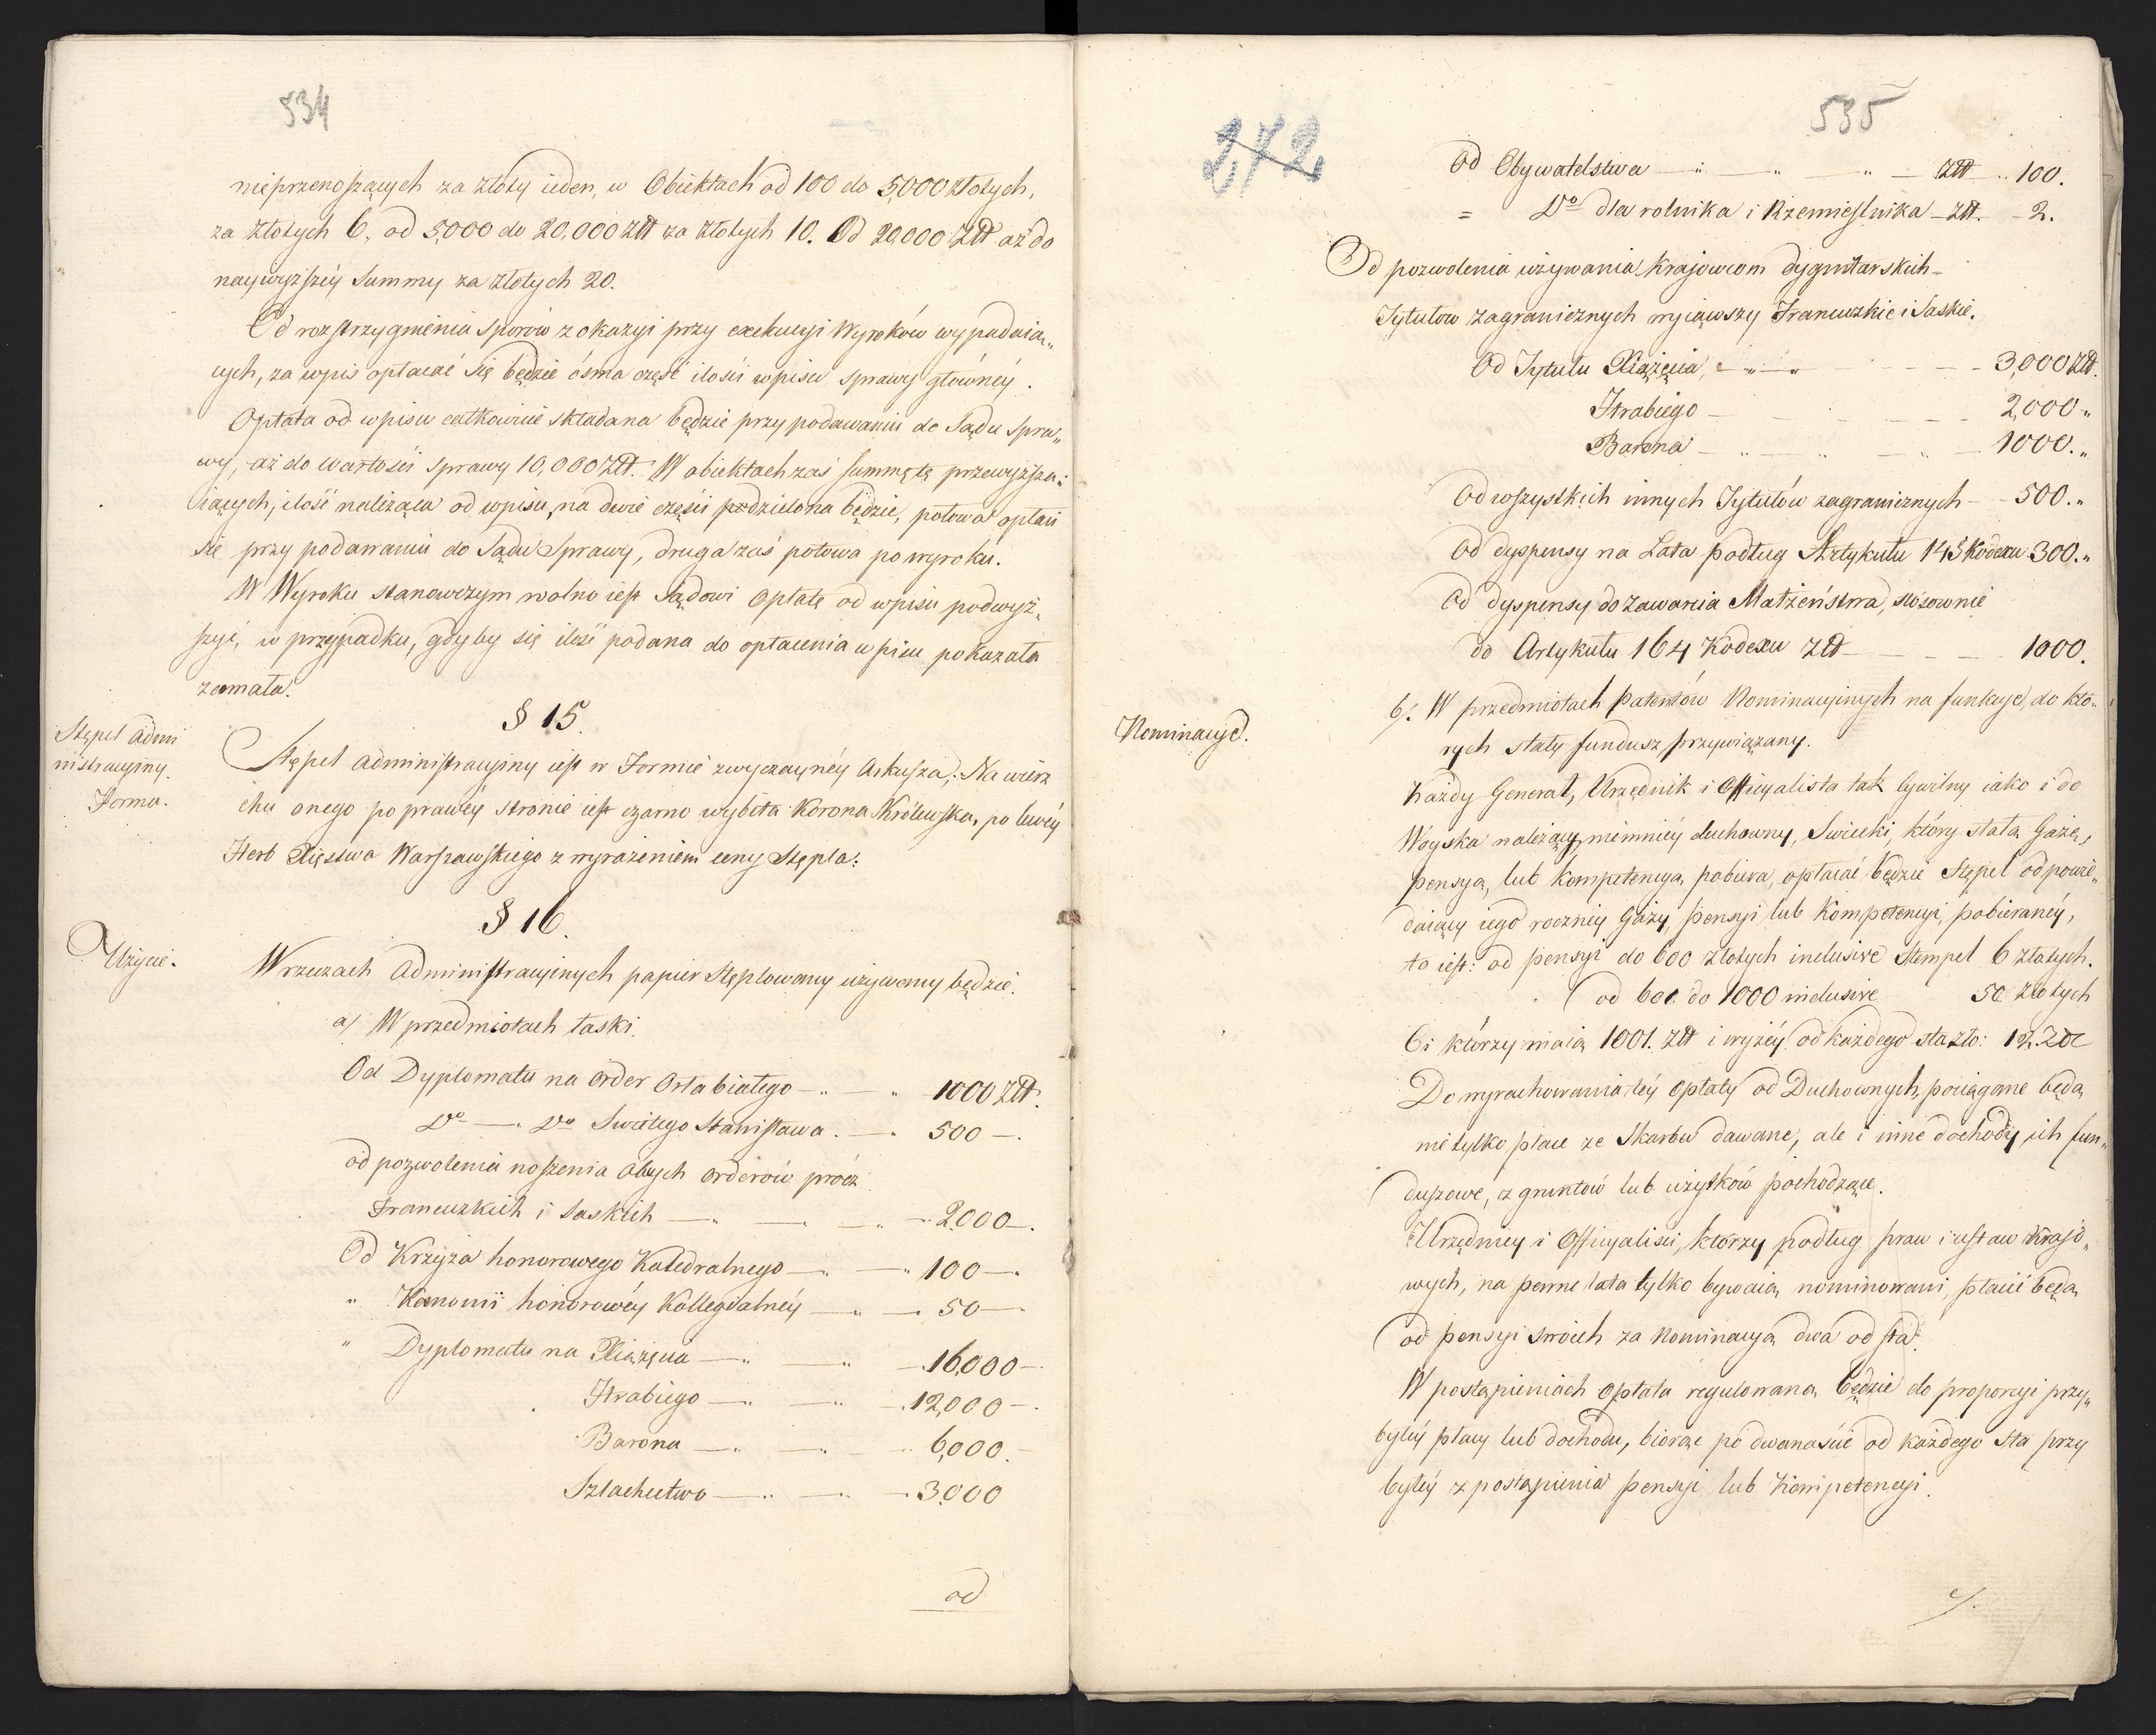 534
nieprzenoszących za złoty ieden, w Obiektach od 100 do 5,000 złotych,
za złotych 6, od 5,000 do 20,000 złł za złotych 10. Od 20,000 Złł aż do
naywyższéy Summy za złotych 20.
Od rozstrzygnienia sporów z okazyi przy exekucyi Wyroków wypadaią„
cych, za wpis opłacać się będzie ósma część ilości wpisu sprawy główney.
Opłata od wpisu całkowicie składana będzie przy podawaniu do Sądu spra„
wy, aż do wartości sprawy 10,000 Złł. W obiektach zaś summę tę przewyższa„
iących, ilość należąca od wpisu, na dwie części podzielona będzie, połowa opłaci
się przy podawaniu do Sądu Sprawy, druga zaś połowa po wyroku.
W Wyroku stanowczym wolno iest Sądowi Opłatę od wpisu podwyż„
szyć, w przypadku, gdyby się ilość podana do opłacenia wpisu pokazała
zamała.
§ 15.
Stępel admi
nistracyiny.
Forma.
Stępel administracyiny iest w Formie zwyczayney Arkusza; Na wierz
chu onego po prawéy stronie iest czarno wybita Korona Królewska, po lewéy
Herb Xięstwa Warszawskiego z wyrażeniem ceny Stępla.
§ 16.
Użycie.
W rzeczach Administracyinych papier stęplowany używany będzie.
a/ W przedmiotach łaski.
Od Dyplomatu na Order Orła białego — „ — „ 1000 Złł.
Do — . Do Swiętego Stanisława . — . 500 — .
od pozwolenia noszenia obcych orderów prócz
Francuzkich i Saskich — „ — „ — „ — 2000 — .
Od Krzyża honorowego Katedralnego — „ — „ 100 — .
„ Kanonii honorowéy Kollegialnéy — „ — . 50 —
„ Dyplomatu na Xiążęcia — „ — „ — 16,000 —
Hrabiego — „ — „ — . 12,000 — .
Barona — „ — „ 6,000. —
Szlachectwo — „ — „ — . 3,000
od
535
272
Od Obywatelstwa — „ — „ — „ — Złł „ 100.
= Do dla rolnika i Rzemieslnika — Złł. — 2.
Od pozwolenia używania Krajowcom dygnitarskich
Tytułow zagranicznych wyiąwszy Francuzkie i Saskie.
Od Tytułu Xiążęcia, — „ — „ — — — 3,000 Złł.
Hrabiego — — — — 2,000 „
Barona — „ — „ — „ — 1000. „
Od wszystkich innych Tytułów zagranicznych — 500. „
Od dyspensy na Lata podług Artykułu 145 Kodexu 300. „
Od dyspensy do zawarcia Małżeństwa, stósownie
do Artykułu 164 Kodexu Złł — — — 1000.
Nominacye.
b/. W przedmiotach Patentów Nominacyinych na funkcye, do któ„
rych stały fundusz przywiązany.
Każdy Generał, Urzędnik i Officyalista tak Cywilny iako i do
Woyska należący, niemniéy duchowny, Swiecki, który stałą Gażę,
pensyą, lub Kompetencyą pobiera, opłacać będzie Stępel odpowie„
daiący iego roczney Gaży, pensyi lub Kompetencyi, pobieranéy,
to iest: od pensyi do 600 złotych inclusive Stempel 6 złotych.
od 601 do 1000 inclusive 50 złotych
Ci którzy maią 1001. Złł i wyżéy od każdego sta zło: 12. Złł
Do wyrachowania téy opłaty od Duchownych, pociągane będą
nie tylko płace ze Skarbu dawane, ale i inne dochody, ich fun„
duszowe, z gruntów lub użytków pochodzące.
Urzędnicy i Officyalisci, którzy podług praw i ustaw krajo„
wych, na pewne lata tylko bywaią nominowani, płacić będą
od pensyi swoich za Nominacyą dwa od sta.
W postąpieniach Opłata regulowaną będzie do proporcyi przy„
byłéy płacy lub dochodu, biorąc po dwanaście od każdego sta przy
byłéy z postąpienia pensyi lub Kompetencyi.
c/.